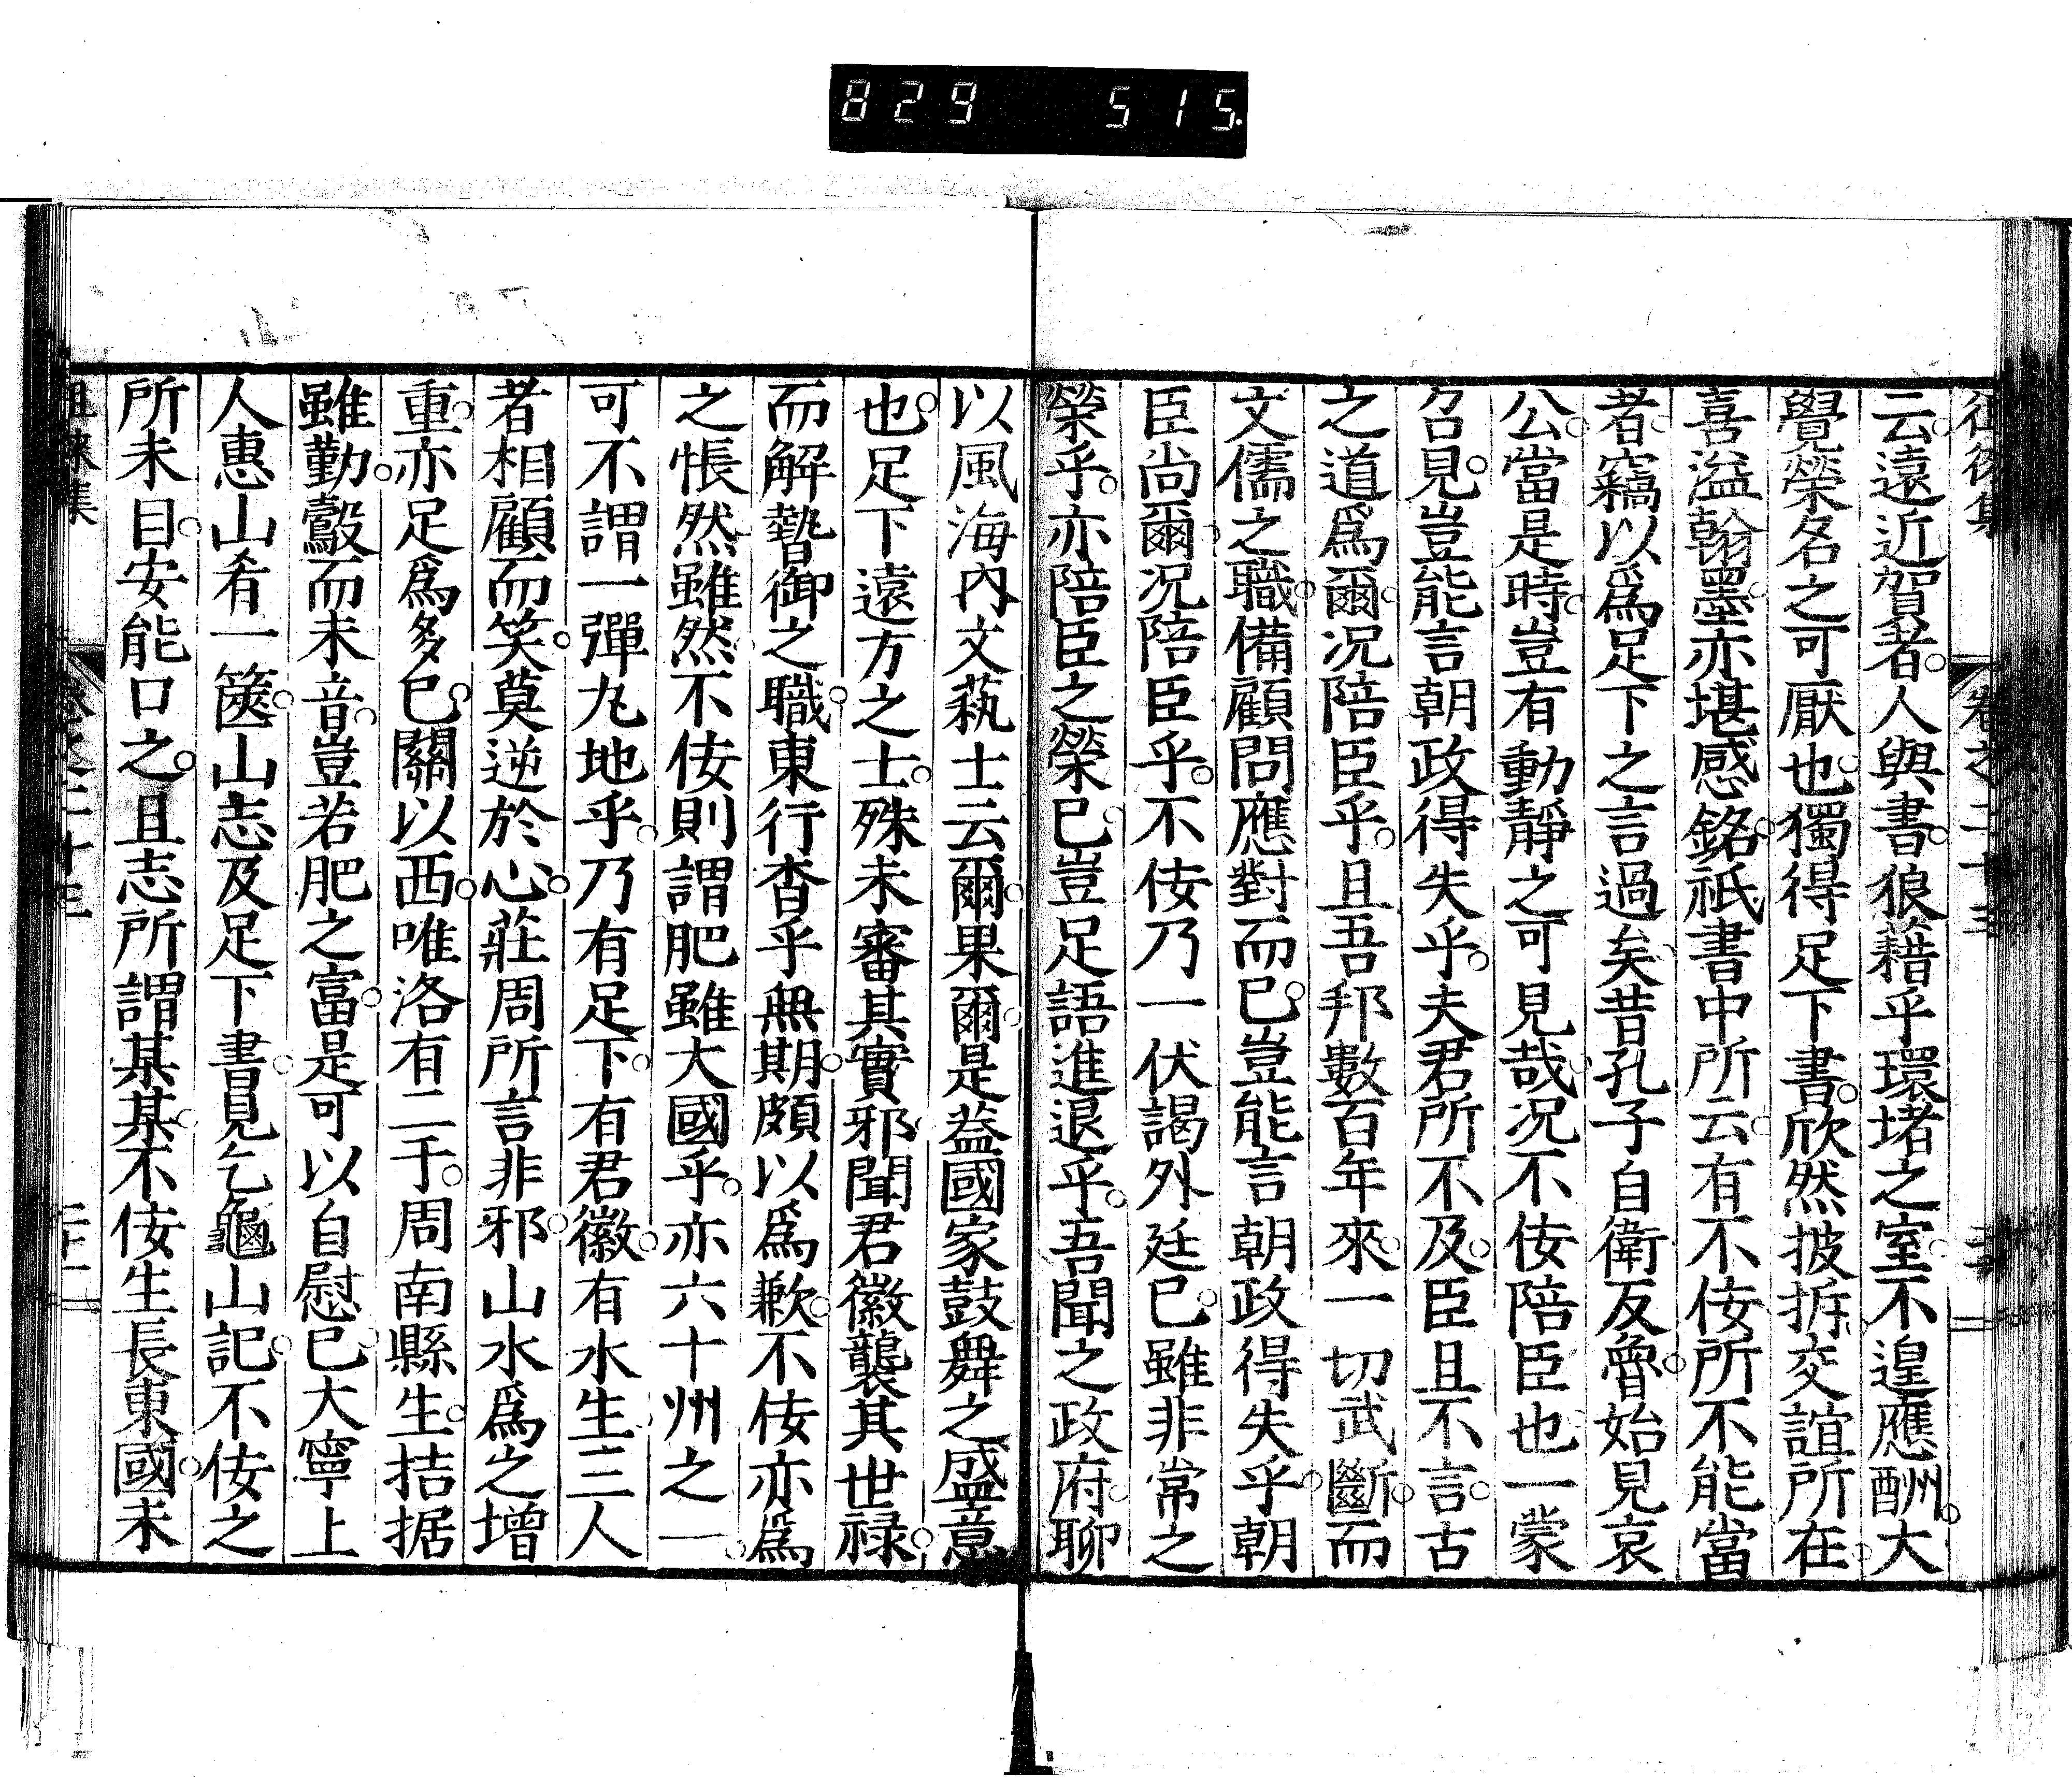 829 515.
徂徠集 卷之二十三 二十
云遠近賀者人與書狼藉乎環堵之室不遑應酬大
覺榮名之可厭也獨得足下書欣然披拆交誼所在
喜溢翰墨亦堪感銘祇書中所云有不佞所不能當
者竊以爲足下之言過矣昔孔子自衛反魯始見哀
公當是時豈有動靜之可見哉况不佞陪臣也一蒙
召見豈能言朝政得失乎夫君所不及臣且不言古
之道爲爾况陪臣乎且吾邦數百年來一切武斷而
文儒之職備顧問應對而已豈能言朝政得失乎朝
臣尚爾况陪臣乎不佞乃一伏謁外廷已雖非常之
榮乎亦陪臣之榮已豈足語進退乎吾聞之政府聊
以風海內文蓺士云爾果爾是葢國家鼓舞之盛意
也足下遠方之士殊未審其實邪聞君徽襲其世祿
而解蟄御之職東行杳乎無期頗以爲歉不佞亦爲
之悵然雖然不佞則謂肥雖大國乎亦六十州之一
可不謂一彈丸地乎乃有足下有君徽有水生三人
者相顧而笑莫逆於心莊周所言非邪山水爲之增
重亦足爲多已關以西唯洛有二于周南縣生拮据
雖勤鷇而未音豈若肥之富是可以自慰已大寧上
人惠山肴一篋山志及足下書見乞龜山記不佞之
所未目安能口之且志所謂某某不佞生長東國未
徂徠集 卷之二十三 二十一